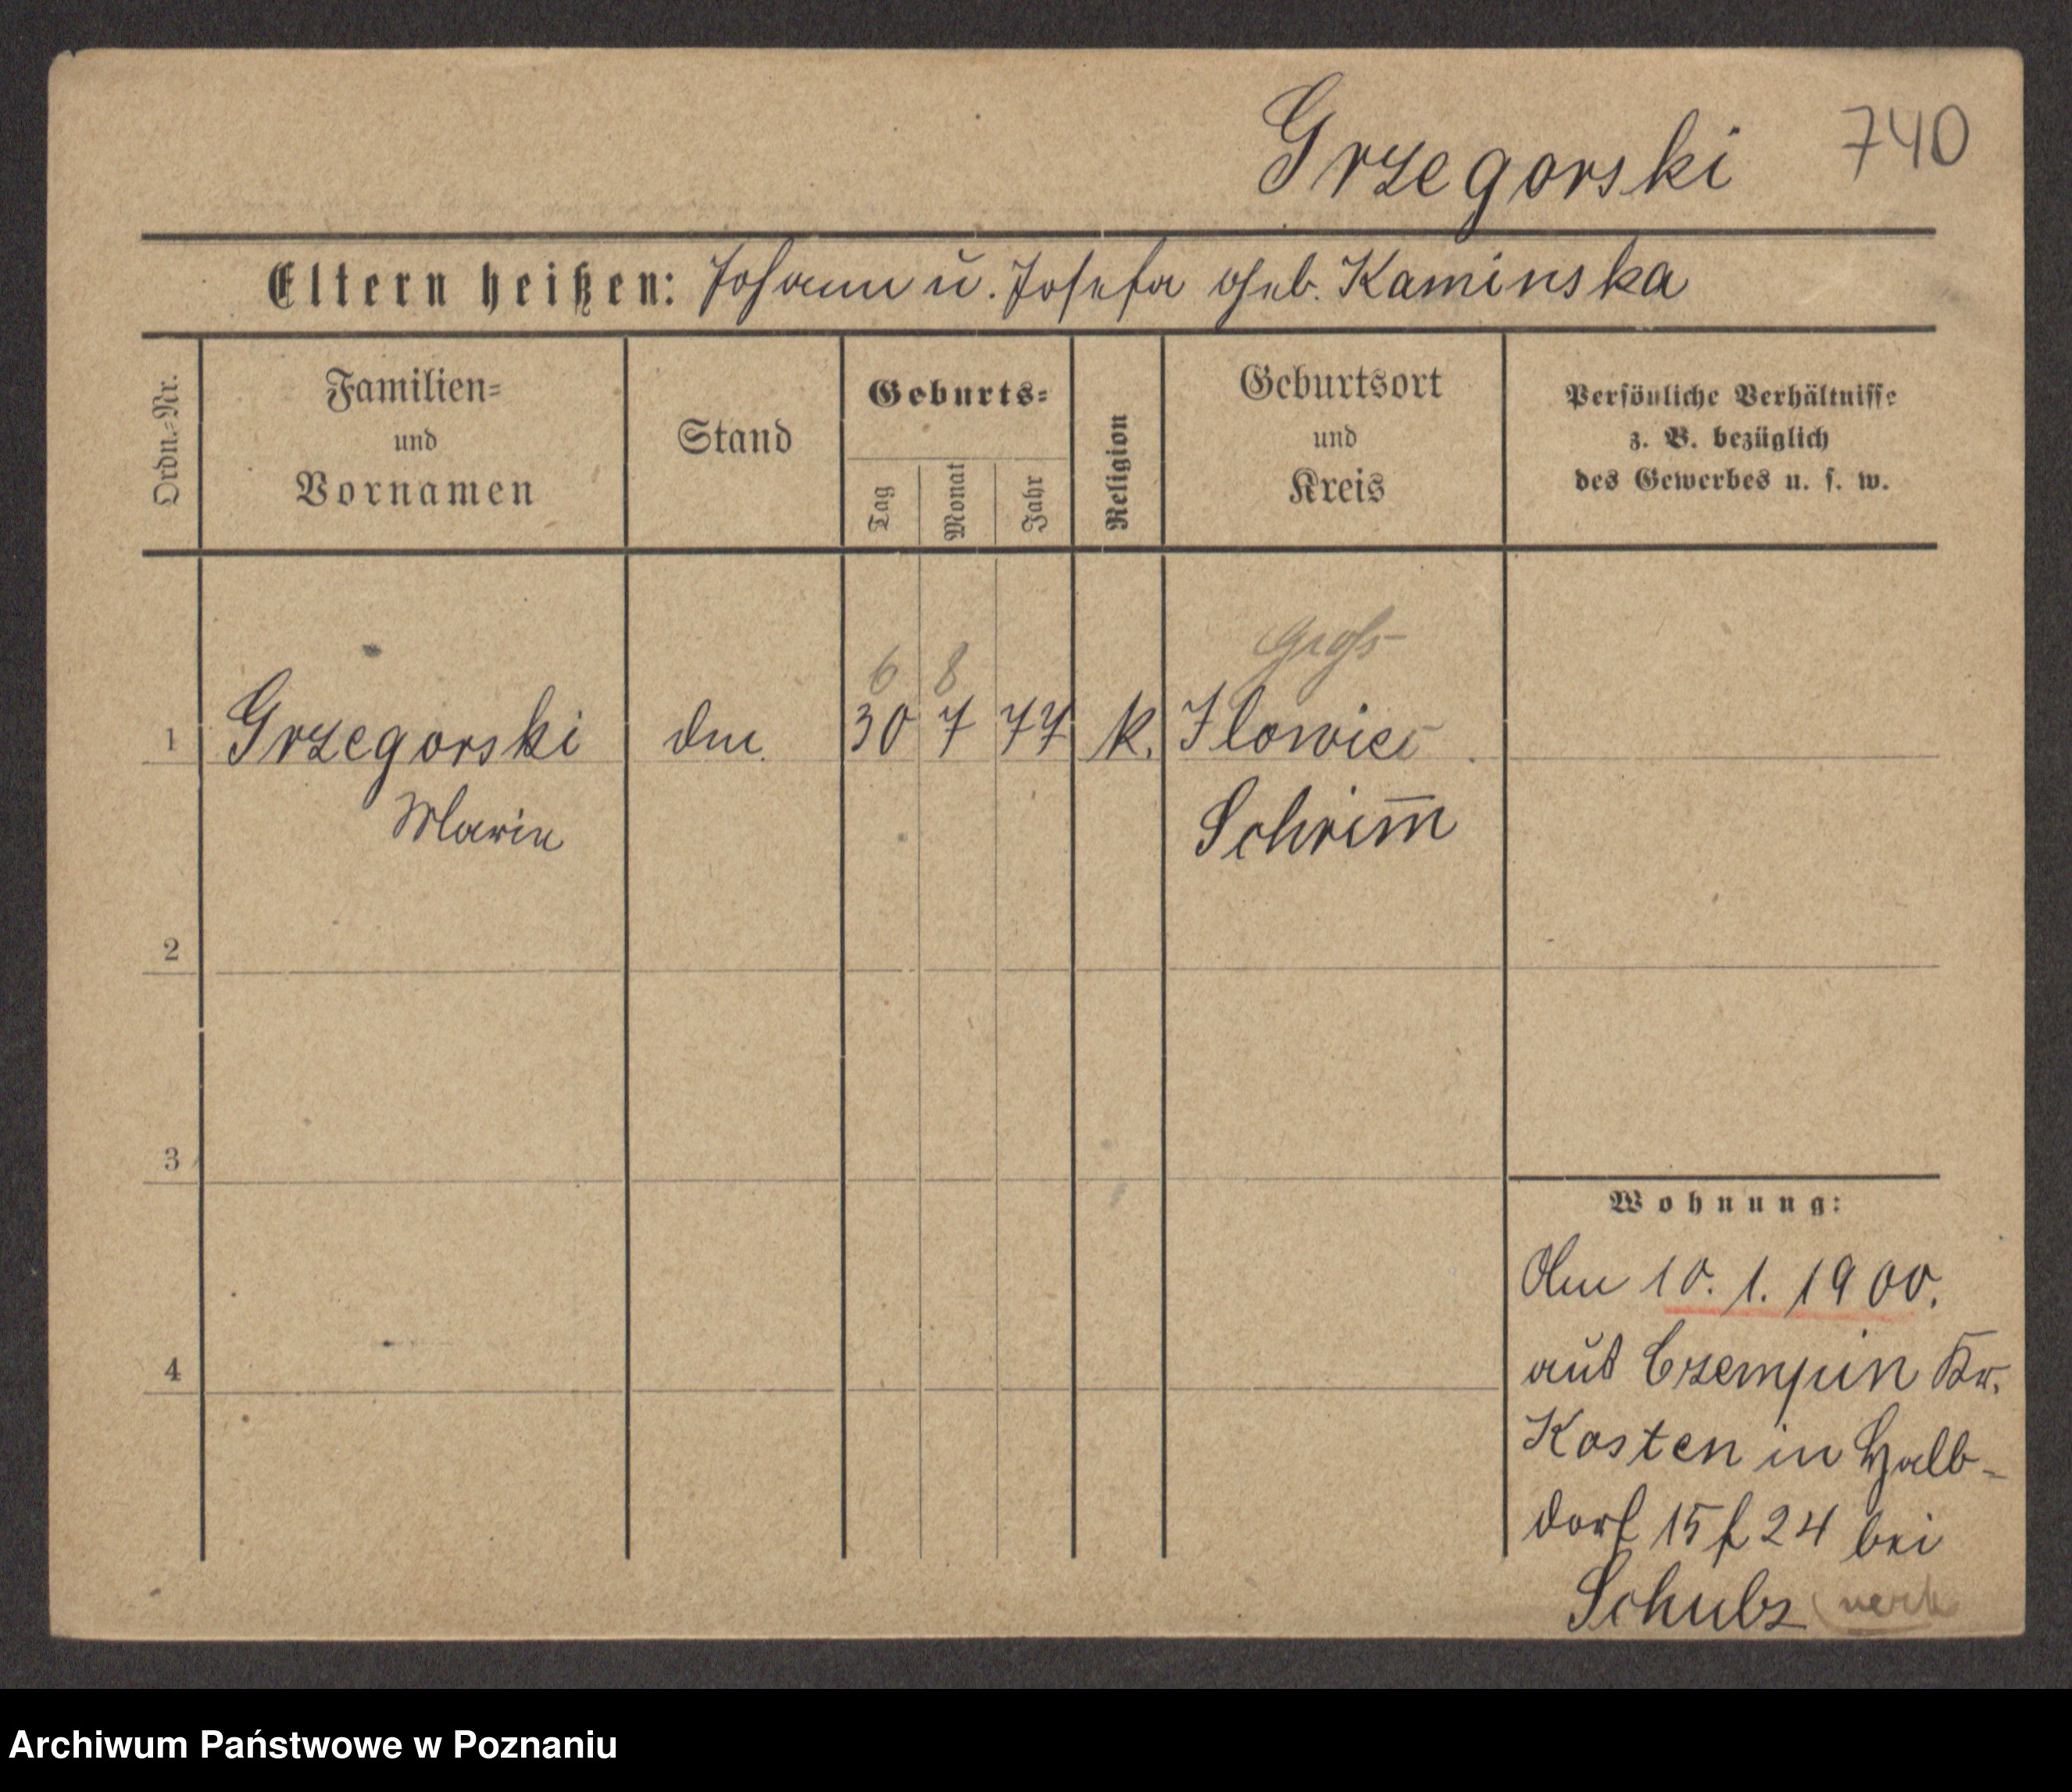 Grzegorski 740
Eltern heißen: Johann u. Josefa geb. Kaminska
Ordn.-Nr.
Familien-
und
Vornamen
Stand
Geburts-
Tag
Monat
Jahr
Religion
Geburtsort
und
Kreis
Persönliche Verhältnisse
z. B. bezüglich
des Gewerbes u. s. w.
Groß
6 8
1 Grzegorski 30 7 77 k. Ilowiec
Marie Schrim̅
2
3
4
Wohnung:
Am 10. 1. 1900.
aus Czempin Kr.
Kosten in Halb-
dorf 15 f 24 bei
Schulz
Archiwum Państwowe w Poznaniu